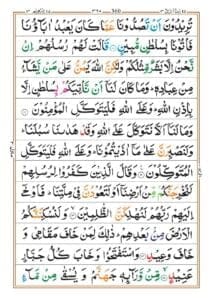 تُرِيدُونَ اَنْ تَصُدُّونَا عَمَّا كَانَ يَعْبُدُ اٰبَآؤُنَا
فَاْتُونَا بِسُلْطٰنٍ مُّبِيْنٍ قَالَتْ لَهُمْ رُسُلُهُمْ اِنْ
نَّحْنُ اِلَّا بَشَرٌ مِّثْلُكُمْ وَلٰكِنَّ اللّٰهَ يَمُنُّ عَلٰى مَنْ يَّشَآءُ
مِنْ عِبَادِهٖ وَمَا كَانَ لَنَآ اَنْ نَّاْتِيَكُمْ بِسُلْطٰنٍ اِلَّا
بِاِذْنِ اللّٰهِ وَعَلَى اللّٰهِ فَلْيَتَوَكَّلِ الْمُؤْمِنُوْنَ
وَمَا لَنَآ اَلَّا نَتَوَكَّلَ عَلَى اللّٰهِ وَقَدْ هَدٰىنَا سُبُلَنَا
وَلَنَصْبِرَنَّ عَلٰى مَآ اٰذَيْتُمُوْنَا وَعَلَى اللّٰهِ فَلْيَتَوَكَّلِ
الْمُتَوَكِّلُوْنَ وَقَالَ الَّذِيْنَ كَفَرُوْا لِرُسُلِهِمْ
لَنُخْرِجَنَّكُمْ مِّنْ اَرْضِنَآ اَوْ لَتَعُوْدُنَّ فِيْ مِلَّتِنَا فَاَوْحٰٓى
اِلَيْهِمْ رَبُّهُمْ لَنُهْلِكَنَّ الظّٰلِمِيْنَ وَلَنُسْكِنَنَّكُمُ
الْاَرْضَ مِنْ بَعْدِهِمْ ذٰلِكَ لِمَنْ خَافَ مَقَامِيْ وَ
خَافَ وَعِيْدِ وَاسْتَفْتَحُوْا وَخَابَ كُلُّ جَبَّارٍ
عَنِيْدٍ مِّنْ وَّرَآئِهٖ جَهَنَّمُ وَ يُسْقٰى مِنْ مَّآءٍ